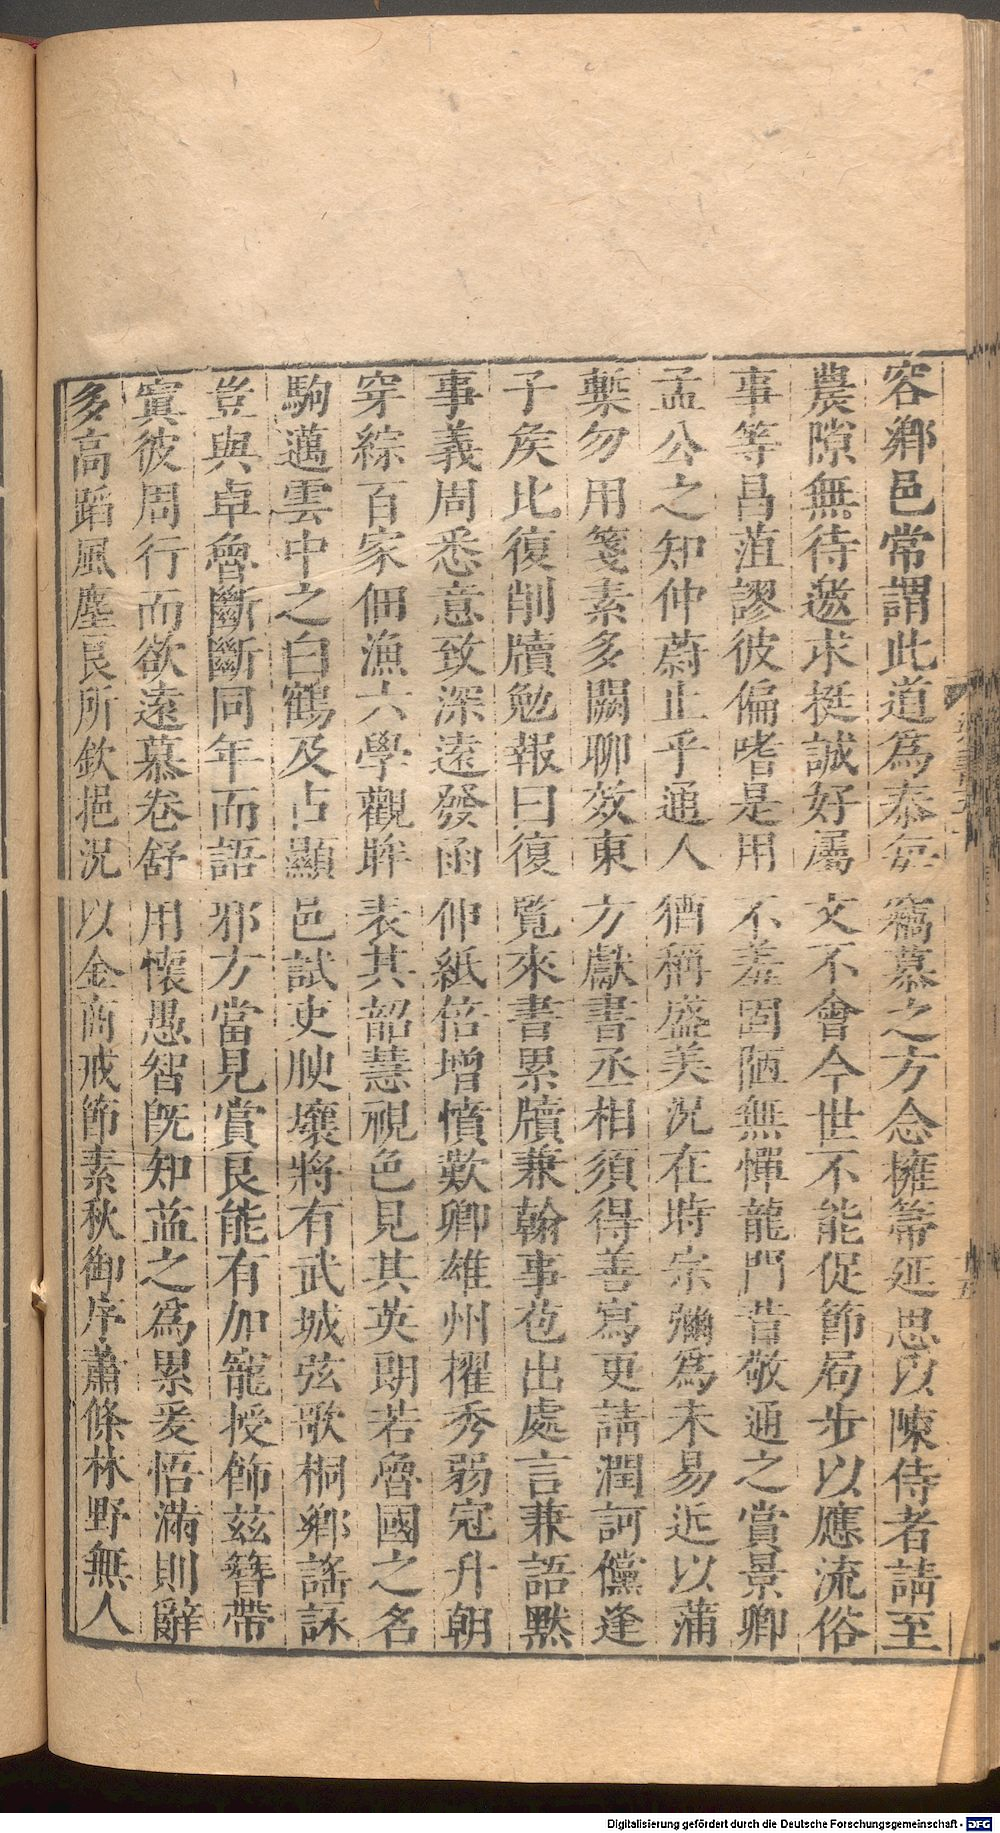 容鄉邑常謂此道爲泰每竊慕之方念擁箒延思以陳侍者請至
農隙無待邀求挺誠好屬文不會今世不能促節局步以應流俗
事等昌菹謬彼偏嗜是用不羞固陋無憚龍門昔敬通之賞景卿
孟公之知仲蔚止乎通人猶稱盛美況在時宗彌爲未易近以蒲
槧勿用箋素多闕聊效東方獻書丞相須得善寫更請潤訶儻逢
子矦比復削牘勉報曰復覽來書累牘兼翰事苞出處言兼語默
事義周悉意致深遠發函伸紙倍增憤歎卿雄州擢秀弱冠升朝
穿綜百家佃漁六學觀眸表其韶慧視色見其英朗若魯國之名
駒邁雲中之白鶴及占顯邑試吏腴壤將有武城弦歌桐鄉謠詠
豈與卓魯斷斷同年而語邪方當見賞良能有加寵授飾茲簪帶
寘彼周行而欲遠慕卷舒用懷愚智旣知益之爲累爰悟滿則辭
多高蹈風塵良所欽挹況以金商戒節素秋御序蕭條林野無人
五
Digitalisierung gefördert durch die Deutsche Forschungsgemeinschaft - DFG